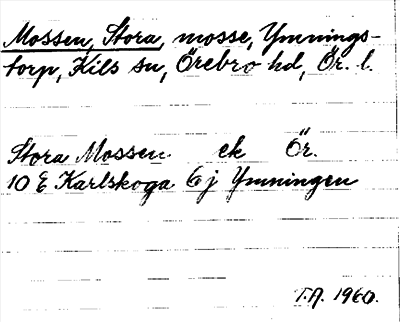 Mossen, Stora, mosse, Ymnings-
torp, Kils sn, Örebro hd, Ör. l.
Stora Mossen ek Ör.
10 E Karlskoga 6 j Ymningen
T.A. 1960.